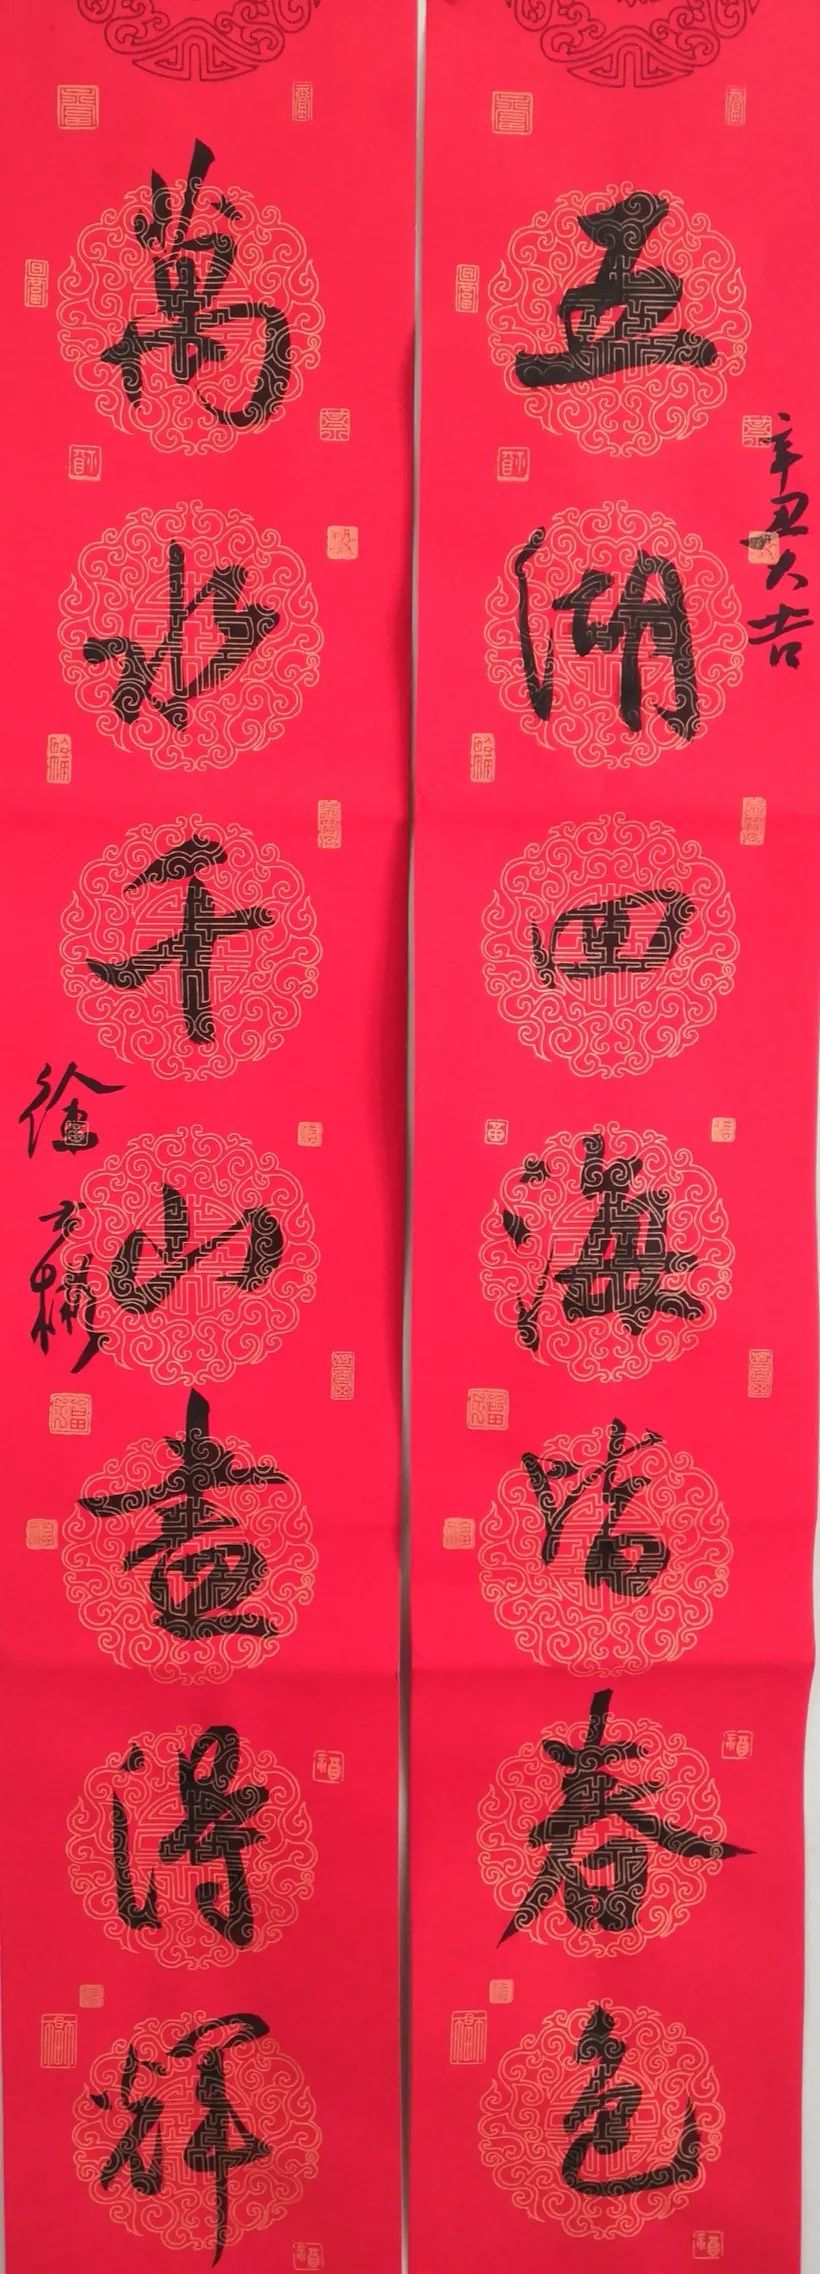 辛丑大吉
五湖四海皆春色
萬水千山盡得輝
徐